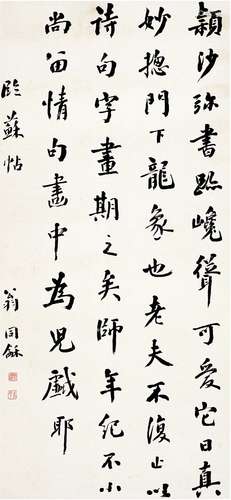 頴沙弥書迹巉聳可愛它日真
妙揔門下龍象也老夫不復止以
詩句字畫期之矣師年紀不小
尚留情句畫中為兒戲耶
臨蘇帖
翁同龢